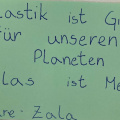 lastik ist G
für unseren
Planeten
las ist Me
re: Zala